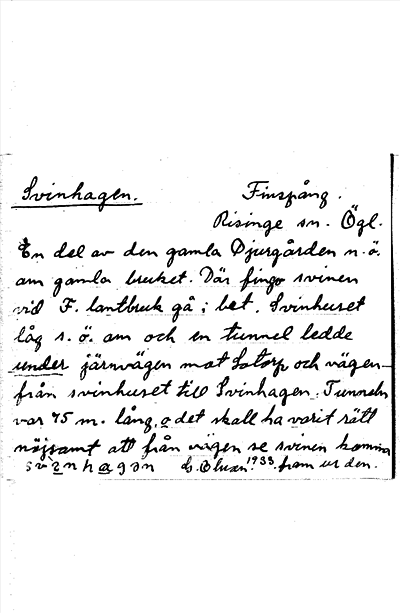 Svinhagen. Finspång.
Risinge sn. Ögl.
En del av den gamla Djurgården n.ö.
om gamla bruket. Där fingo svinen
vid F. lantbruk gå i bet. Svinhuset
låg s.ö. om och en tunnel ledde
under järnvägen mot Lotorp och vägen
från svinhuset till Svinhagen. Tunneln
var 75 m. lång, o det skall ha varit rätt
nöjsamt att från vägen se svinen komma
svinhagən 1933. fram ur den.